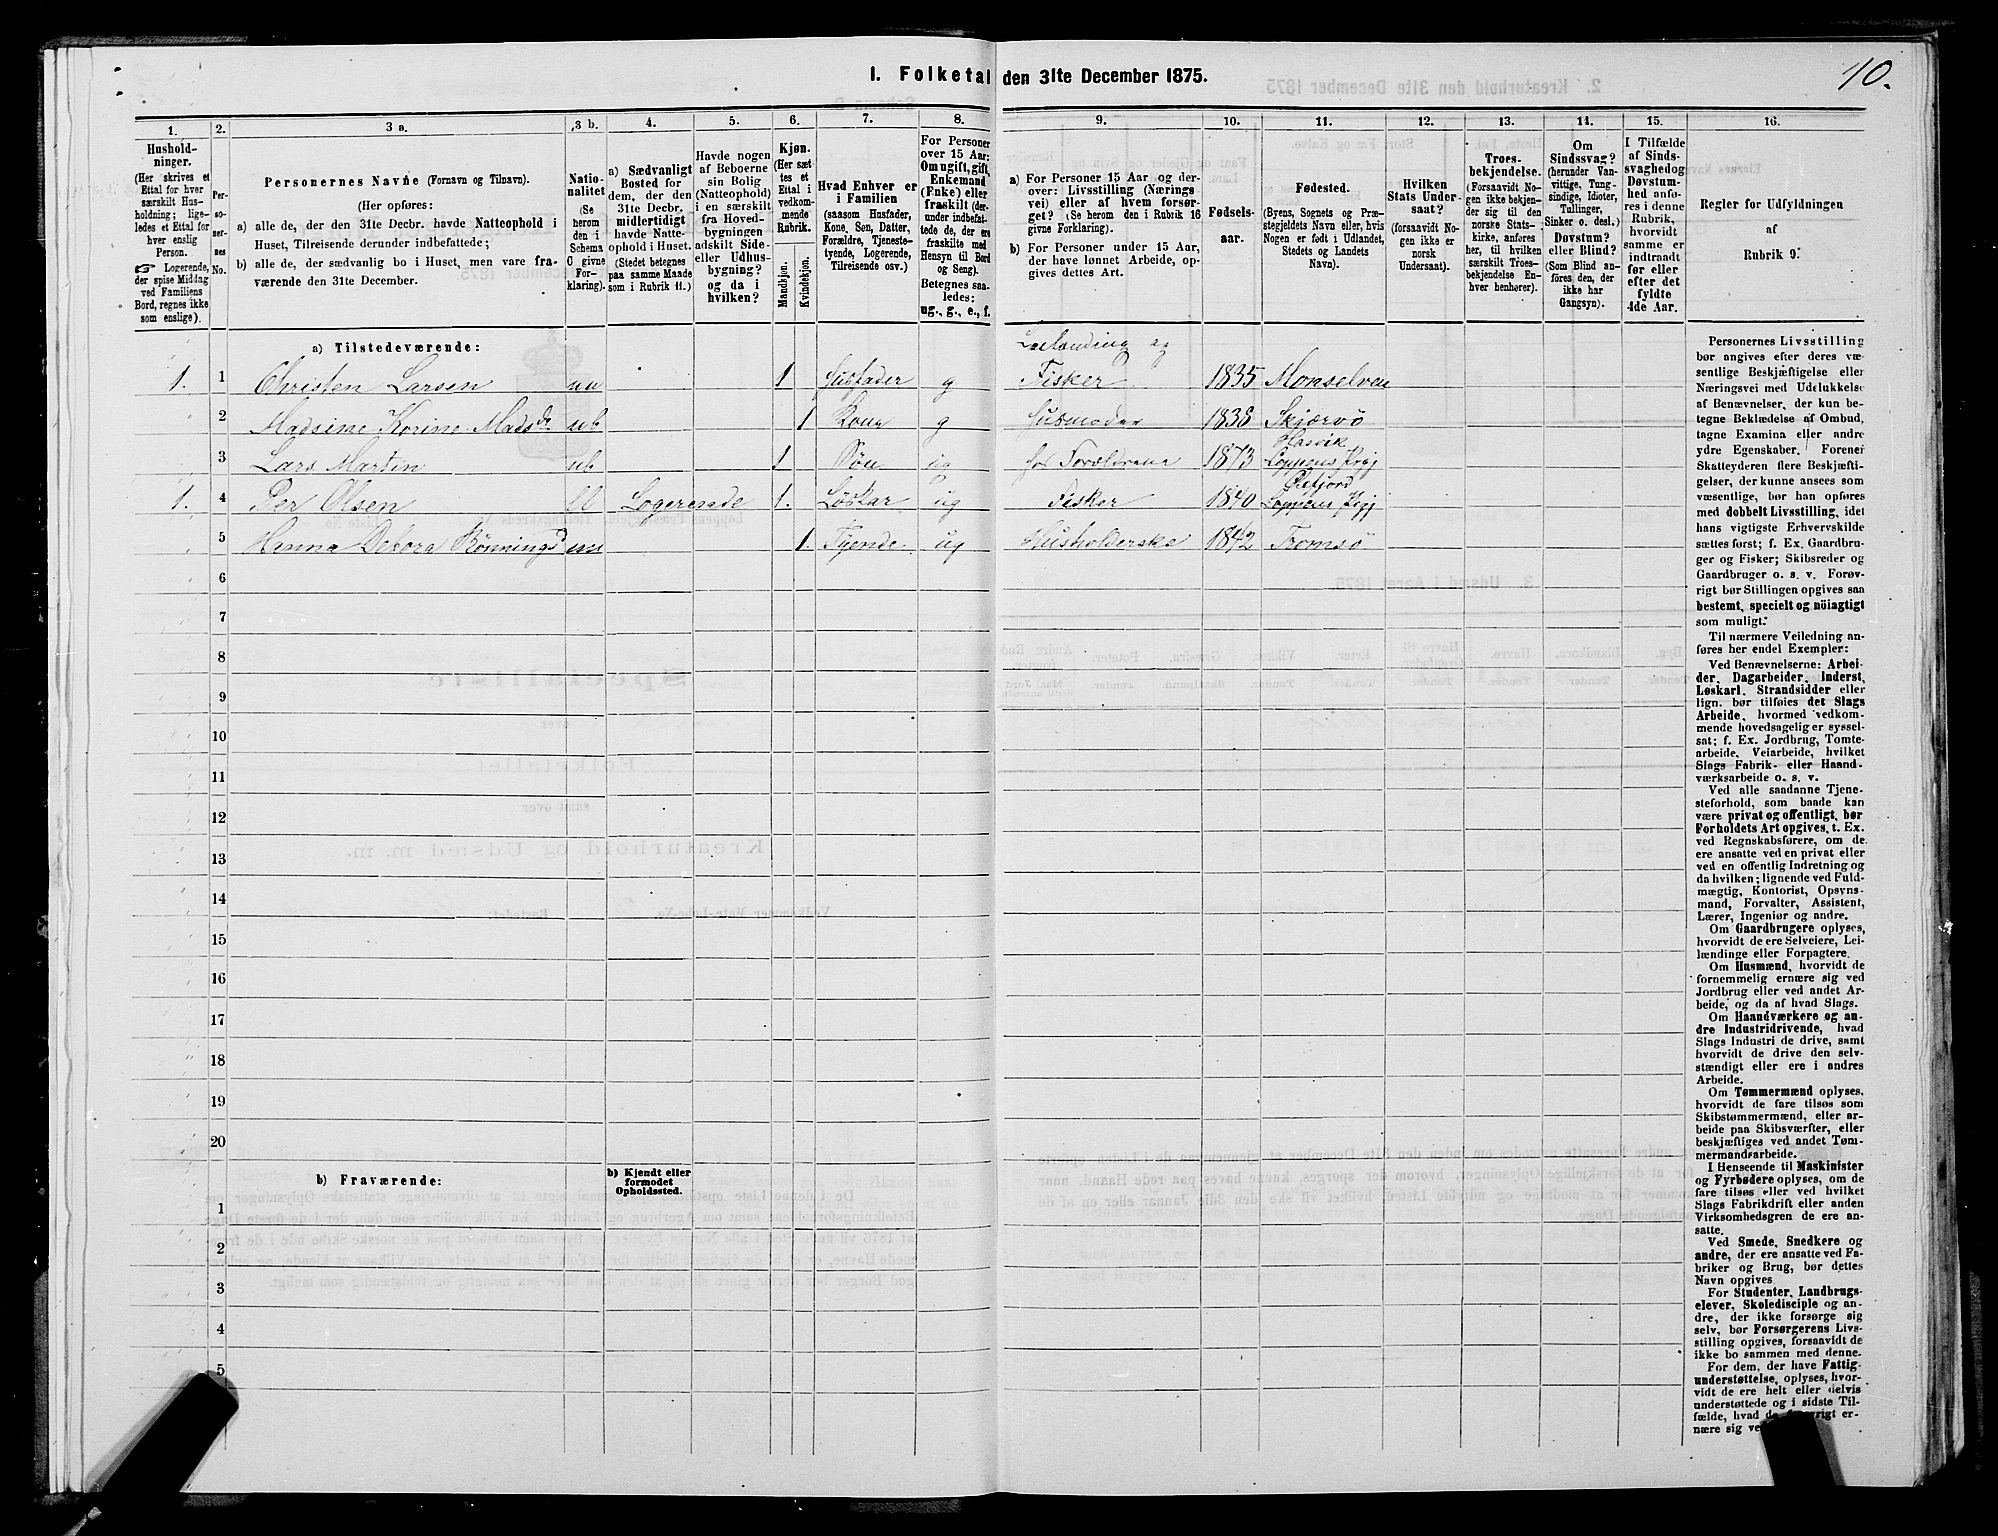 1. Folketal den 31te December 1875.
10.
1.
Hushold-
ninger.
(Her skrives et
Ettal for hver
særskilt Hus-
holdning; lige-
ledes et Ettal for
hver enslig
Person.
☞ Logerende,
der spise Middag
ved Familiens
Bord, regnes ikke
som enslige).
2.
Per-
so-
ner-
nes
No.
3 a.
Personernes Navne (Fornavn og Tilnavn).
(Her opføres:
a) alle de, der den 31te Decbr. havde Natteophold i
Huset, Tilreisende derunder indbefattede;
b) alle de, der sædvanlig bo i Huset, men vare fra-
værende den 31te December.
3 b.
Natio-
nalitet
(Se
herom
den i
Schema
C givne
For-
klaring).
4.
a) Sædvanligt
Bosted for
dem, der den
31te Decbr.
midlertidigt
havde Natte-
ophold i Huset.
(Stedet betegnes
paa samme Maade
som i Rubrik 11.)
5.
Havde nogen
af Beboerne
sin Bolig
(Natteophold)
i en særskilt
fra Hoved-
bygningen
adskilt Side-
eller Udhus-
bygning?
og da i
hvilken?
6.
Kjøn.
(Her sæt-
tes et
Ettal i
vedkom-
mende
Rubrik.
Mandkjøn.
Kvindekjøn.
7.
Hvad Enhver er
i Familien
(saasom Husfader,
Kone, Søn, Datter,
Forældre, Tjeneste-
tyende, Logerende,
Tilreisende osv.)
8.
For Personer
over 15 Aar:
Om ugift, gift,
Enkemand
(Enke) eller
fraskilt (der-
under indbefat-
tede de, der ere
fraskilte med
Hensyn til Bord
og Seng).
Betegnes saa-
ledes:
ug., g., e., f.
9.
a) For Personer 15 Aar og der-
over: Livsstilling (Nærings
vei) eller af hvem forsør-
get? (Se herom den i Rubrik 16
givne Forklaring).
b) For Personer under 15 Aar,
der have lønnet Arbeide, op-
gives dettes Art.
10.
Fødsels-
aar.
11.
Fødested.
(Byens, Sognets og Præ-
stegjeldets Navn eller, hvis
Nogen er født i Udlandet,
Stedets og Landets
Navn).
12.
Hvilken
Stats Under-
saat?
(forsaavidt No-
gen ikke er
norsk
Undersaat).
13.
Troes-
bekjendelse.
(Forsaavidt No-
gen ikke bekjen-
der sig til den
norske Stats-
kirke, anføres
her, til hvilken
særskilt Troes-
bekjendelse En-
hver henhører).
14.
Om
Sindssvag?
(herunder Van-
vittige, Tung-
sindige, Idioter,
Tullinger,
Sinker o. desl.)
Døvstum?
eller Blind?
(Som Blind an-
føres den, der
ikke har
Gangsyn).
15.
I Tilfælde
af Sinds-
svaghed og
Døvstum-
hed anfø-
res i denne
Rubrik,
hvorvidt
samme er
indtraadt
før eller
efter det
fyldte
4de Aar.
16.
Regler for Udfyldningen
af
Rubrik 9.
a) Tilstedeværende:
Leilænding og
1. 1 Christen Larsen nn 1 Husfader g Fisker 1835 Monselven
2 Madsine Korine Madsdr nb 1 Kone g Husmoder 1838 Skjærvö
Hasvik
3 Lars Martin nb 1 Søn ug hos Foreldrene 1873 Loppens Prgj
Øxfjord
1. 4 Per Olsen Logerende 1. Löskar ug Fisker 1840 Loppens Prgj
5 Hanna Debora Rönningsd nn 1. Tyende ug Husholderske 1842 Tromsö
6
7
8
9
10
11
12
13
14
15
16
17
18
19
20
b) Fraværende:
b) Kjendt eller
formodet
Opholdssted.
1
2
3
4
5
Personernes Livsstilling
bør angives efter deres væ-
sentlige Beskjæftigelse eller
Næringsvei med Udelukkelse
af Benævnelser, der kun be-
tegne Beklædelse af Ombud,
tagne Examina eller andre
ydre Egenskaber. Forener
Skatteyderen flere Beskjæfti-
gelser, der kunne ansees som
væsentlige, bør han opføres
med dobbelt Livsstilling, idet
hans vigtigste Erhvervskilde
sættes først; f. Ex. Gaardbru-
ger og Fisker; Skibsreder og
Gaardbruger o. s. v. Forøv-
rigt bør Stillingen opgives saa
bestemt, specielt og nöiagtigt
som muligt.
Til nærmere Veiledning an-
føres her endel Exempler:
Ved Benævnelserne: Arbei-
der, Dagarbeider, Inderst,
Løskarl, Strandsidder eller
lign. bør tilføies det Slags
Arbeide, hvormed vedkom-
mende hovedsagelig er syssel-
sat; f. Ex. Jordbrug, Tomte-
arbeide, Veiarbeide, hvilket
Slags Fabrik- eller Haand-
værksarbeide o. s. v.
Ved alle saadanne Tjene-
steforhold, som baade kan
være privat og offentligt, bør
Forholdets Art opgives, t. Ex.
ved Regnskabsførere, om de
ere ansatte ved en privat eller
ved en offentlig Indretning og
da hvilken; lignende ved Fuld-
mægtig, Kontorist, Opsyns-
mand, Forvalter, Assistent,
Lærer, Ingeniør og andre.
Om Gaardbrugere oplyses,
hvorvidt de ere Selveiere, Lei-
lændinge eller Forpagtere.
Om Husmænd, hvorvidt de
fornemmelig ernære sig ved
Jordbrug eller ved andet Ar-
beide, og da af hvad Slags.
Om Haandværkere og an-
dre Industridrivende, hvad
Slags Industri de drive, samt
hvorvidt de drive den selv-
stændigt eller ere i andres
Arbeide.
Om Tømmermænd oplyses,
hvorvidt de fare tilsøs som
Skibstømmermænd, eller ar-
beide paa Skibsværfter, eller
beskjæftiges ved andet Tøm-
mermandsarbeide.
I Henseende til Maskinister
og Fyrbødere oplyses, om de
fare tilsøs eller ved hvilket
Slags Fabrikdrift eller anden
Virksomhedsgren de ere an-
satte.
Ved Smede, Snedkere og
andre, der ere ansatte ved Fa-
briker og Brug, bør dettes
Navn opgives
For Studenter, Landbrugs-
elever, Skoledisciple og an-
dre, der ikke forsørge sig
selv, bør Forsørgerens Livs-
stilling opgives, forsaavidt de
ikke bo sammen med denne.
For dem, der have Fattig-
understøttelse, oplyses, hvor-
vidt de ere helt eller delvis
understøttede og i sidste Til-
fælde, hvad de